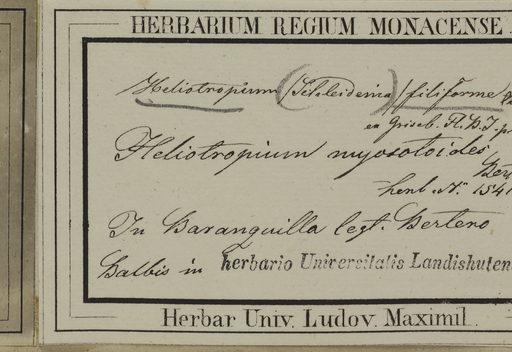 HERBARIUM REGIUM MONACENSE.
Heliotropium (Schleidenia) filiforme
ex Griseb. Fl. B. I. p
Heliotropium myosotoides
Bert
herb. N. 1541
In Baranquilla legt. Bertero
Balbis in herbario Universitatis Landishuten
Herbar Univ. Ludov. Maximil.